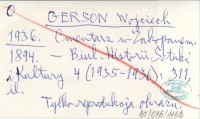 O
GERSON Wojciech
1936. Cmentarz w Zakopanem.
1894. — Biul. Historii Sztuki
i Kultury 4 (1935-1936): 311,
il.
Tylko reprodukcja obrazu.